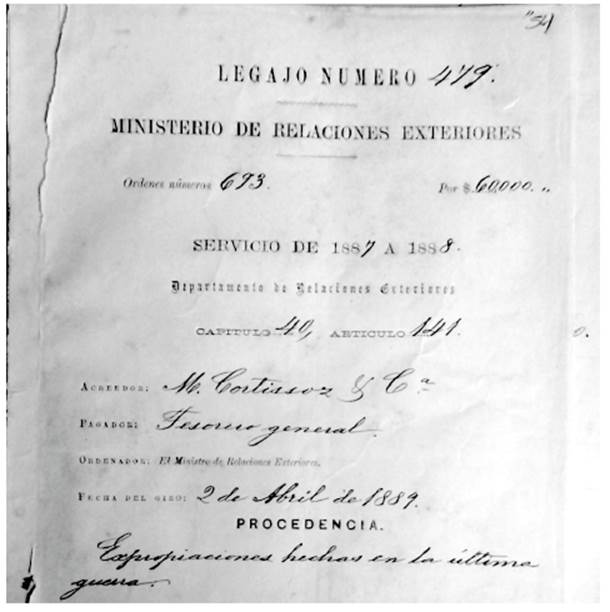 "54
LEGAJO NUMERO 479.
MINISTERIO DE RELACIONES EXTERIORES
Ordenes números 693. Por $ 60,000. „
SERVICIO DE 1887 A 1888.
Departamento de Relaciones Exteriores
CAPITULO 40, ARTICULO 141.
o.
ACREEDOR: M. Cortissoz & Cª
PAGADOR: Tesorero general.
ORDENADOR: El Ministro de Relaciones Exteriores.
FECHA DEL GIRO: 2 de Abril de 1889.
PROCEDENCIA.
Expropiaciones hechas en la última
guerra.